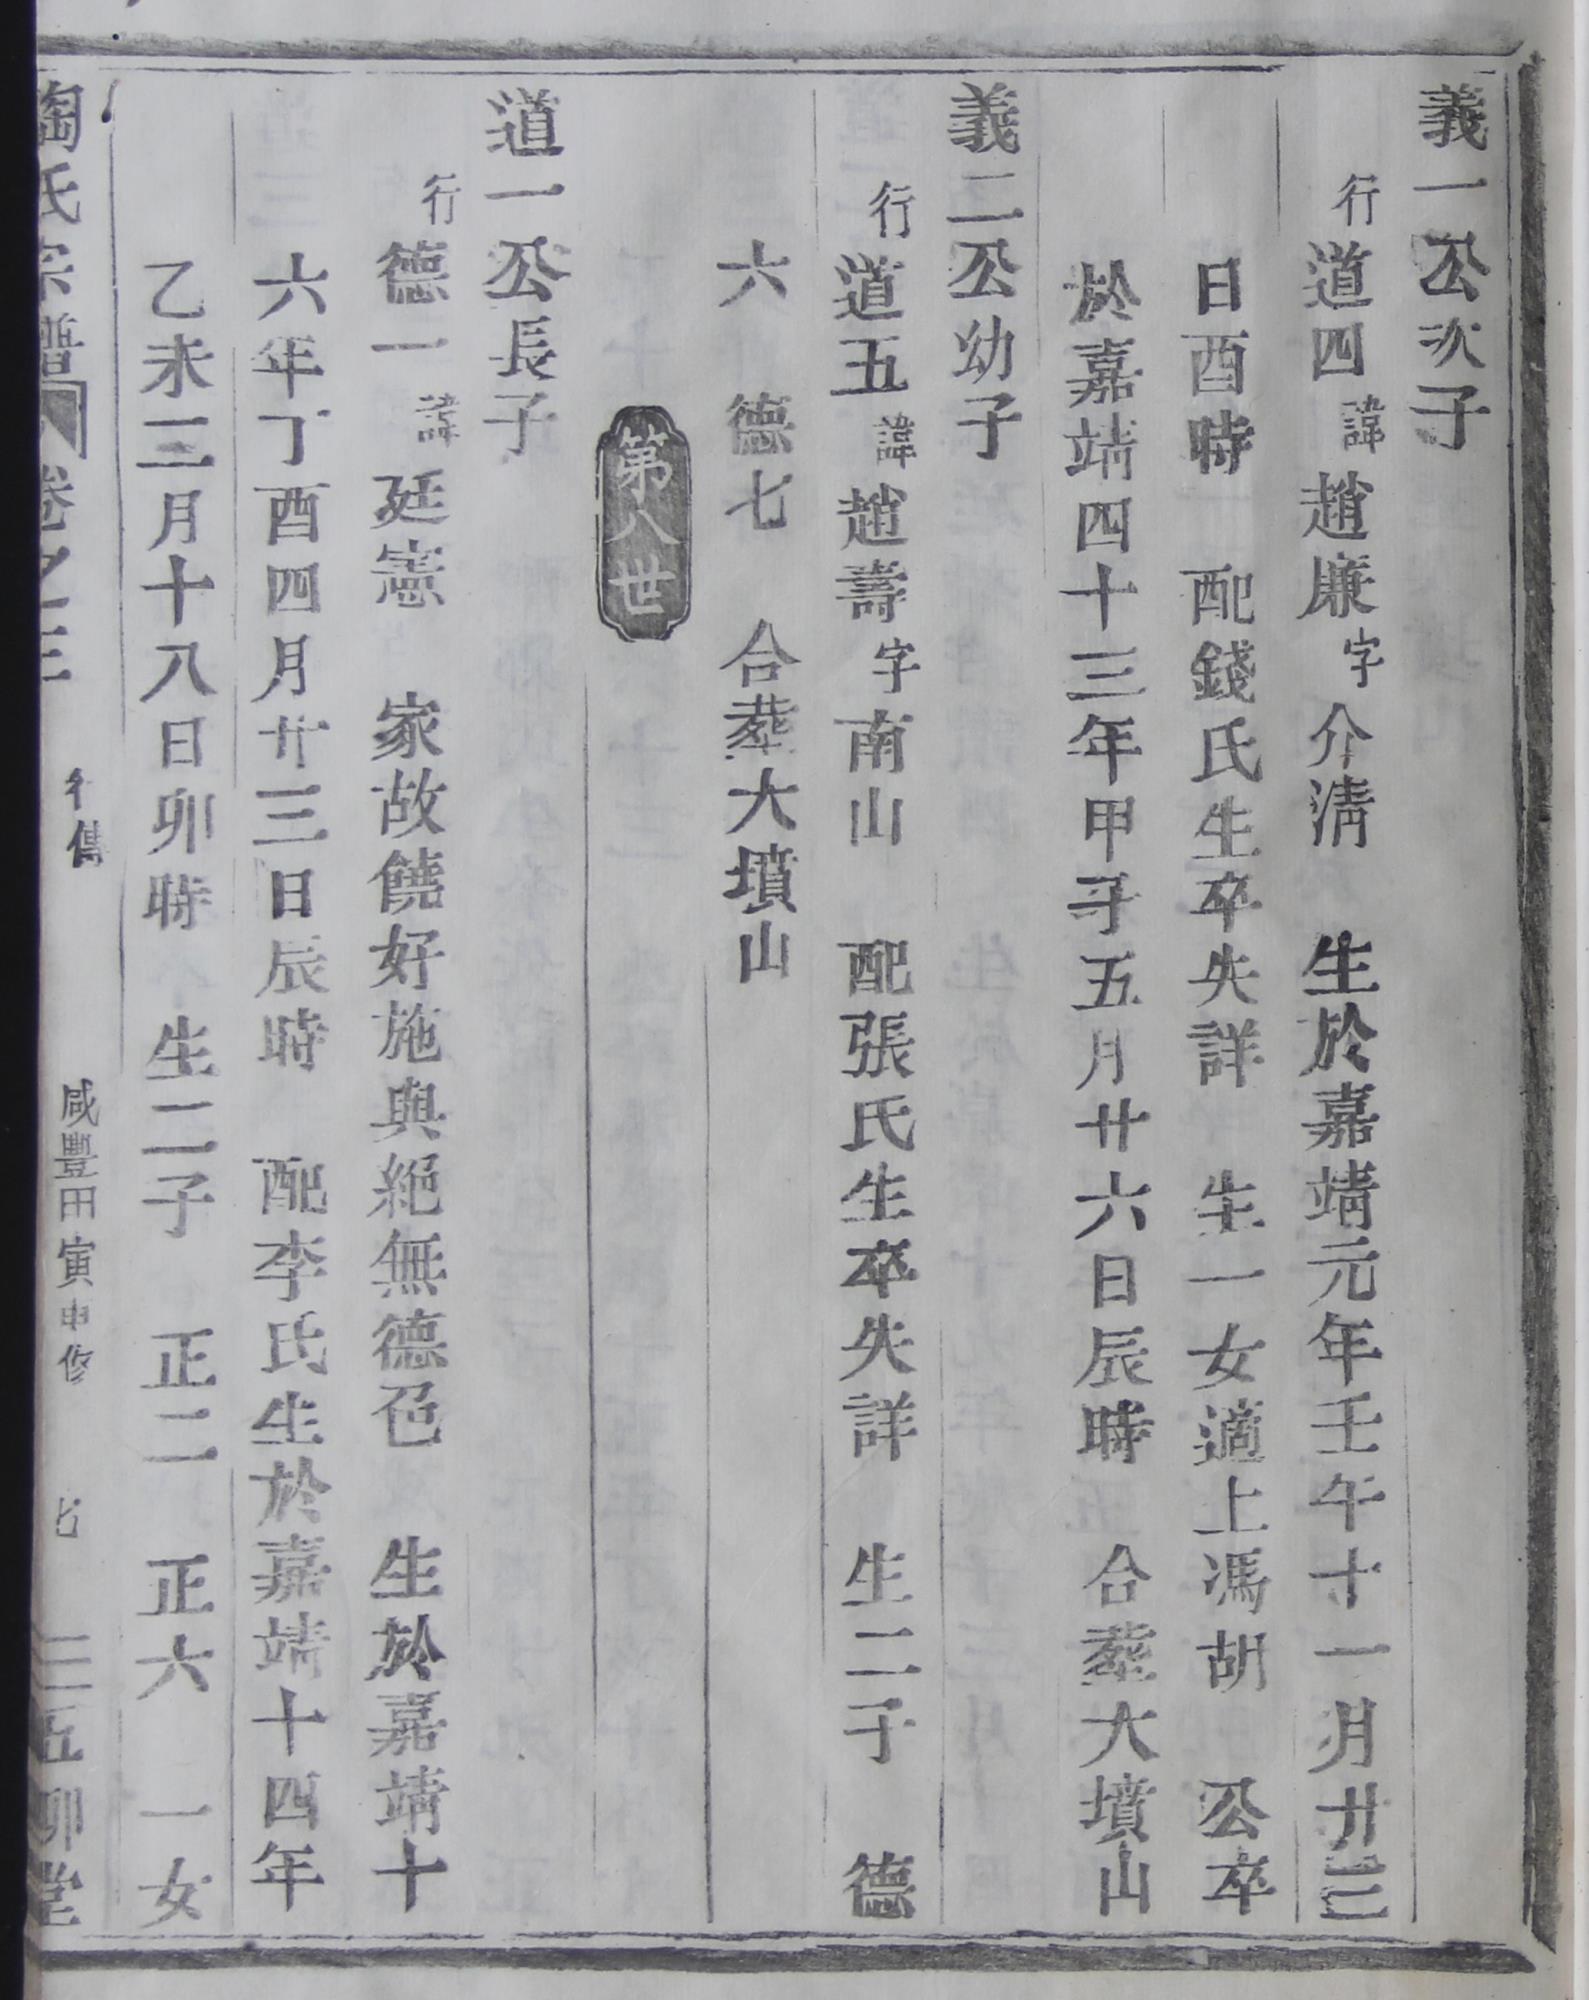 義一公次子
行道四諱趙廉字介淸　生於嘉靖元年壬午十一月廿三
日酉時　配錢氏生卒失詳　生一女適上馮胡　公卒
於嘉靖四十三年甲子五月廿六日辰時　合葬大墳山
義二公幼子
行道五諱趙壽字南山　配張氏生卒失詳　生二子　德
六　德七　合葬大墳山
第八世
道一公長子
行德一諱廷憲　家故饒好施與絕無德色　生於嘉靖十
六年丁酉四月廿三日辰時　配李氏生於嘉靖十四年
乙未三月十八日卯時　生二子　正二　正六　一女
陶氏宗譜　卷之三　行傳　咸豐甲寅重修　七　五柳堂